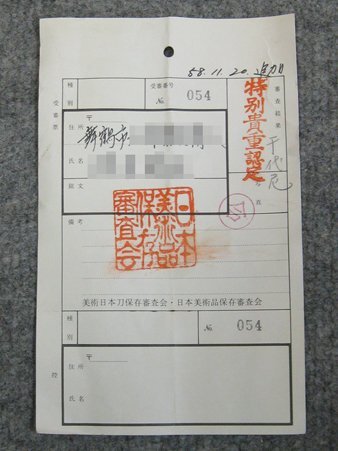 58.11.20.追加
受審票
種別
受審番号
№ 054
審査結果
特別貴重認定
千代尼
〒
住所
舞鶴市
氏名
銘文
頁
備考
日本美術品保存審査会
美術日本刀保存審査会・日本美術品保存審査会
種別
№ 054
〒
住所
氏名
控